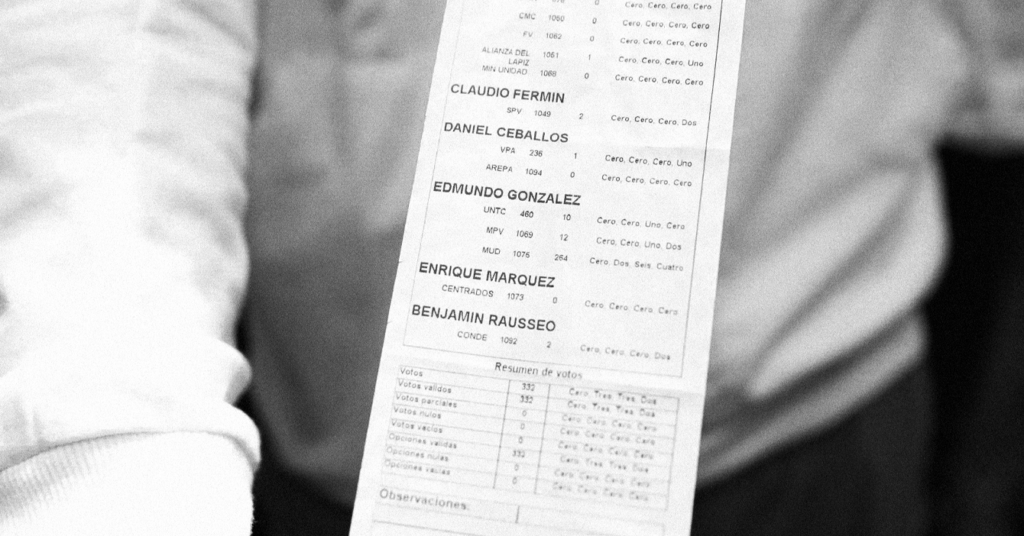 0 Cero, Cero, Cero, Cero
CMC 1060 0 Cero, Cero, Cero, Cero
FV 1062 0 Cero, Cero, Cero, Cero
ALIANZA DEL LAPIZ 1061 1 Cero, Cero, Cero, Uno
MIN UNIDAD 1068 0 Cero, Cero, Cero, Cero
CLAUDIO FERMIN
SPV 1049 2 Cero, Cero, Cero, Dos
DANIEL CEBALLOS
VPA 236 1 Cero, Cero, Cero, Uno
AREPA 1094 0 Cero, Cero, Cero, Cero
EDMUNDO GONZALEZ
UNTC 460 10 Cero, Cero, Uno, Cero
MPV 1069 12 Cero, Cero, Uno, Dos
MUD 1075 264 Cero, Dos, Seis, Cuatro
ENRIQUE MARQUEZ
CENTRADOS 1073 0 Cero, Cero, Cero, Cero
BENJAMIN RAUSSEO
CONDE 1092 2 Cero, Cero, Cero, Dos
Resumen de votos
Votos 332 Cero, Tres, Tres, Dos
Votos validos 332 Cero, Tres, Tres, Dos
Votos parciales 0 Cero, Cero, Cero, Cero
Votos nulos 0 Cero, Cero, Cero, Cero
Votos vacios 0 Cero, Cero, Cero, Cero
Opciones validas 332 Cero, Tres, Tres, Dos
Opciones nulas 0 Cero, Cero, Cero, Cero
Opciones vacias 0 Cero, Cero, Cero, Cero
Observaciones: